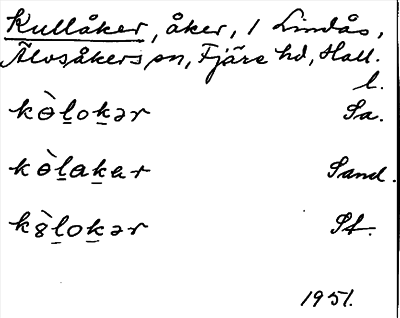 Kullåker, åker, 1 Lindås,
Älvsåkers sn, Fjäre hd, Hall.
l.
kɵ̀l̲ok̲ər Sa.
kɵ̀l̲ak̲ar Sand.
k8̀l̲ok̲ər St.
1951.